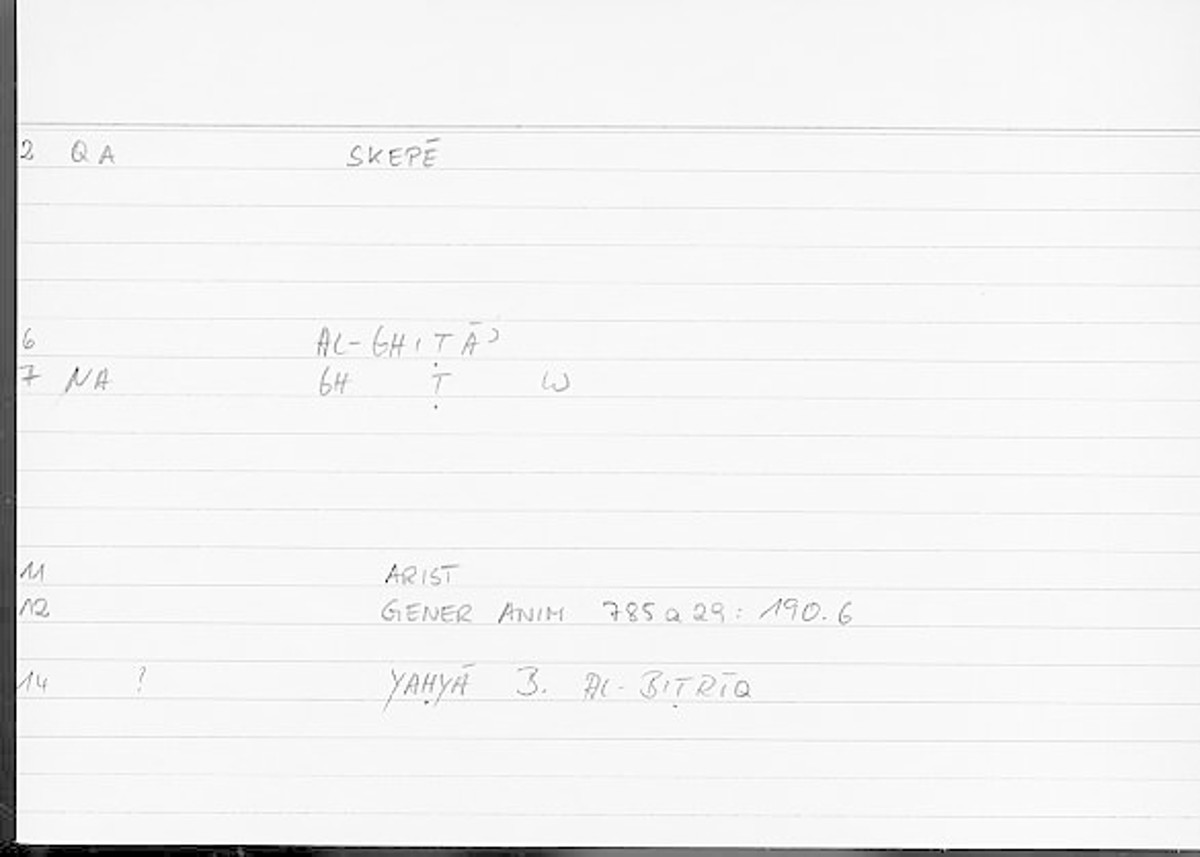 2 QA SKEPĒ
6 AL-GHIṬĀʾ
7 NA GH Ṭ W
11 ARIST
12 GENER ANIM 785a29: 190.6
14 ? YAḤYĀ B. AL-BIṬRĪQ